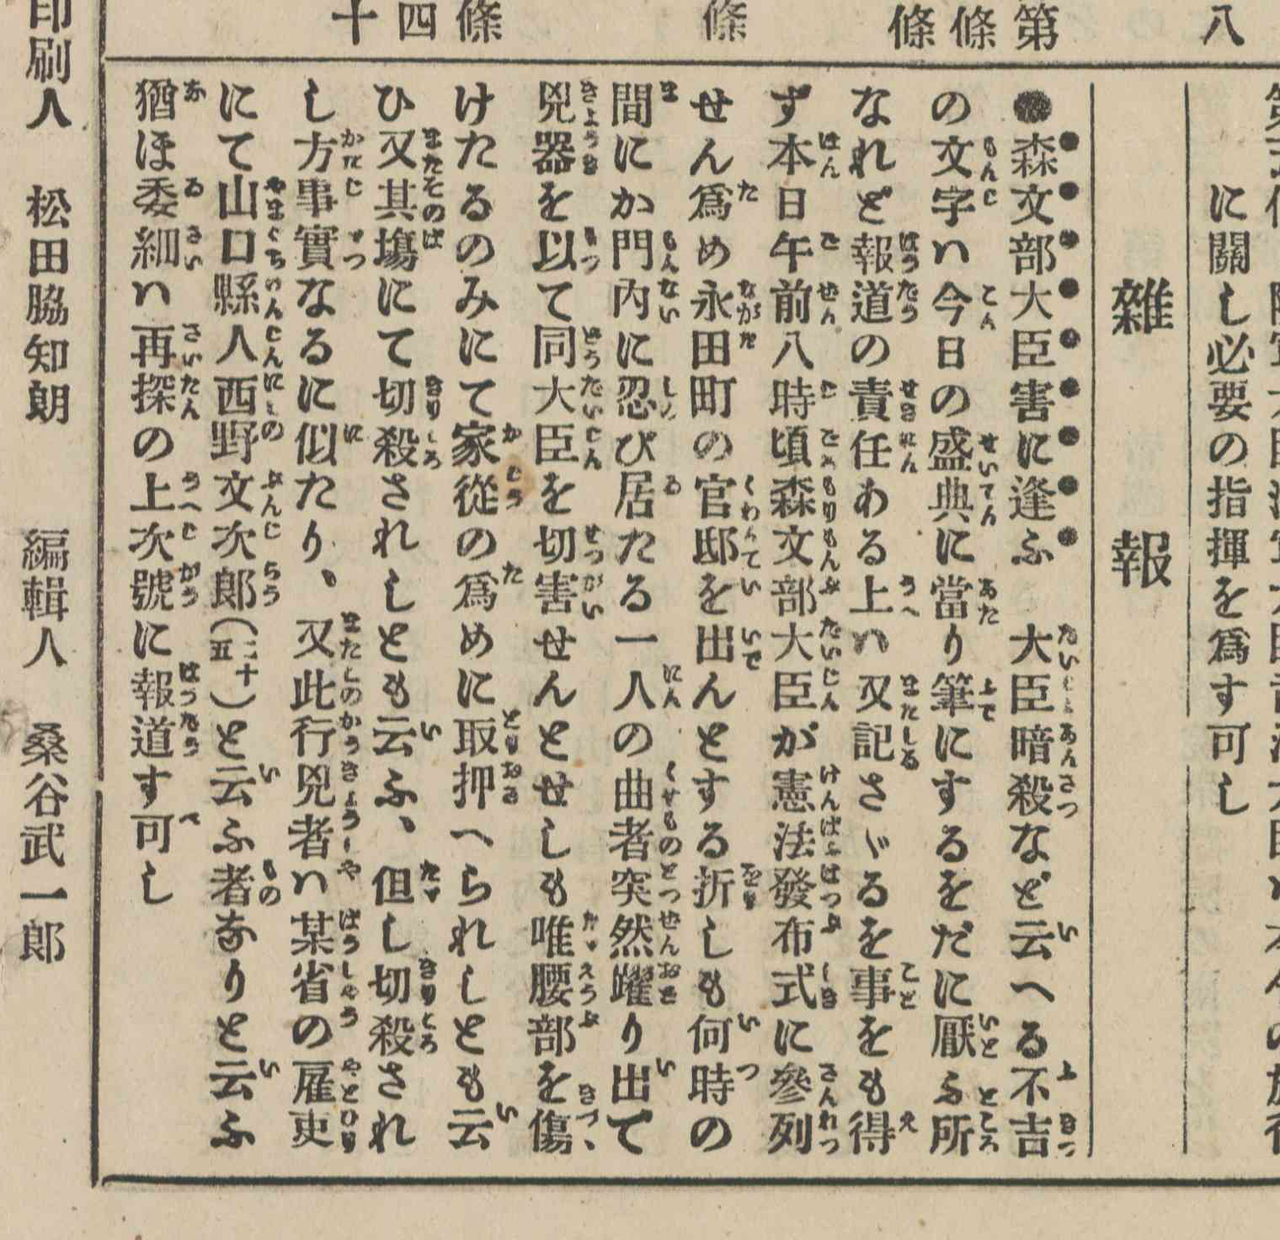 八
第
條
條
條
條
四
十
に關し必要の指揮を爲す可し
雜報
●森文部大臣害に逢ふ 大臣暗殺など云へる不吉
の文字ハ今日の盛典に當り筆にするをだに厭ふ所
なれど報道の責任ある上ハ又記さゞるを事をも得
ず本日午前八時頃森文部大臣が憲法發布式に參列
せん爲め永田町の官邸を出んとする折しも何時の
間にか門内に忍び居たる一人の曲者突然躍り出て
兇器を以て同大臣を切害せんとせしも唯腰部を傷
けたるのみにて家從の爲めに取押へられしとも云
ひ又其塲にて切殺されしとも云ふ、但し切殺され
し方事實なるに似たり、又此行兇者ハ某省の雇吏
にて山口縣人西野文次郎(二十五)と云ふ者なりと云ふ
猶ほ委細ハ再探の上次號に報道す可し
印刷人 松田脇知朗 編輯人 桑谷武一郎